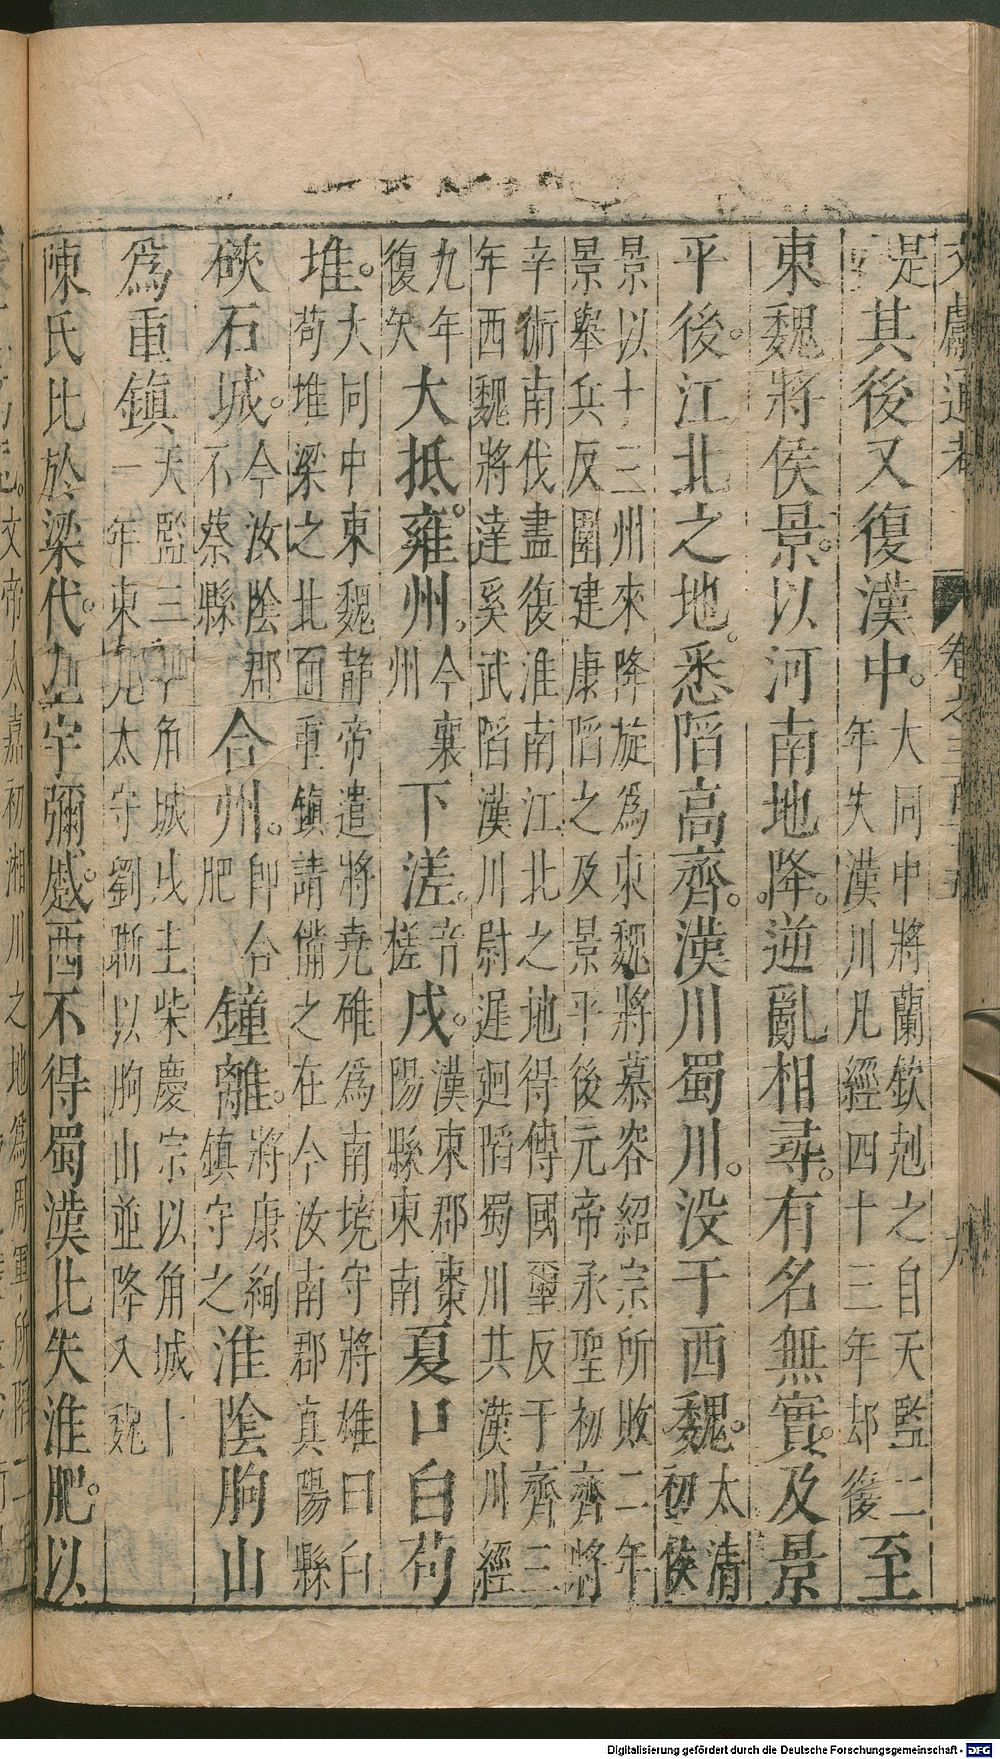 文獻通考 卷之三百十五 九
是 其後又復漢中。大同中將蘭欽剋之自天監二年失漢川凡經四十三年却復 至
東魏將侯景。以河南地降。逆亂相尋。有名無實。及景
平後。江北之地。悉陷高齊。漢川蜀川。没于西魏。太清初侯
景以十三州來降旋爲東魏將慕容紹宗所敗二年景舉兵反圍建康陷之及景平後元帝承聖初齊將
辛術南伐盡復淮南江北之地得傳國璽反于齊三年西魏將達奚武陷漢川尉遲迥陷蜀川共漢川經
九年復失 大抵。雍州。今襄州 下溠。音槎 戍。漢東郡棗陽縣東南 夏口白苟
堆。大同中東魏靜帝遣將堯碓爲南境守將雄曰白苟堆梁之北面重鎮請備之在今汝南郡真陽縣
硤石城。今汝陰郡下蔡縣 合州。卽合肥 鐘離。將康絢鎮守之 淮陰朐山
爲重鎮 天監三年角城戍主柴慶宗以角城十一年東莞太守劉晣以朐山並降入魏
陳氏比於梁代。土宇彌蹙。西不得蜀漢北失淮肥。以
Digitalisierung gefördert durch die Deutsche Forschungsgemeinschaft - DFG